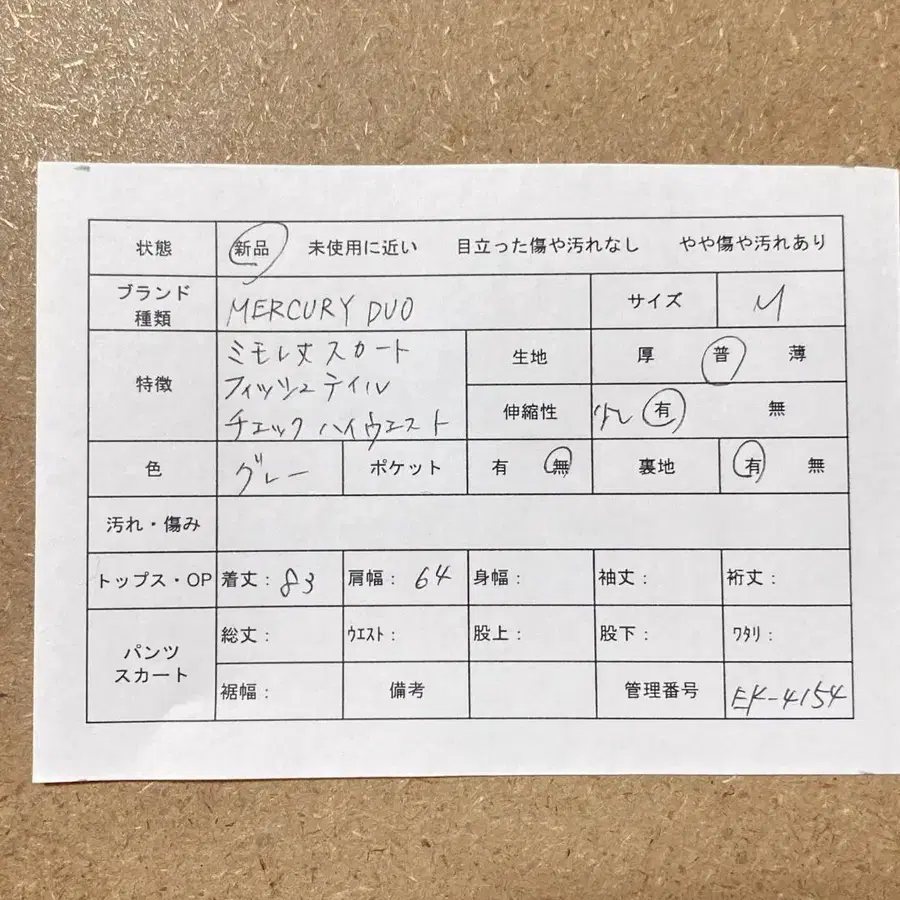 状態 新品 未使用に近い 目立った傷や汚れなし やや傷や汚れあり
ブランド
種類
MERCURY DUO
サイズ M
特徴
ミモレ丈スカート
フィッシュテイル
チェック ハイウエスト
生地 厚 普 薄
伸縮性 少し 有 無
色 グレー ポケット 有 無 裏地 有 無
汚れ・傷み
トップス・OP 着丈：83 肩幅：64 身幅： 袖丈： 裄丈：
パンツ
スカート
総丈： ウエスト： 股上： 股下： ワタリ：
裾幅： 備考 管理番号 EK-4154